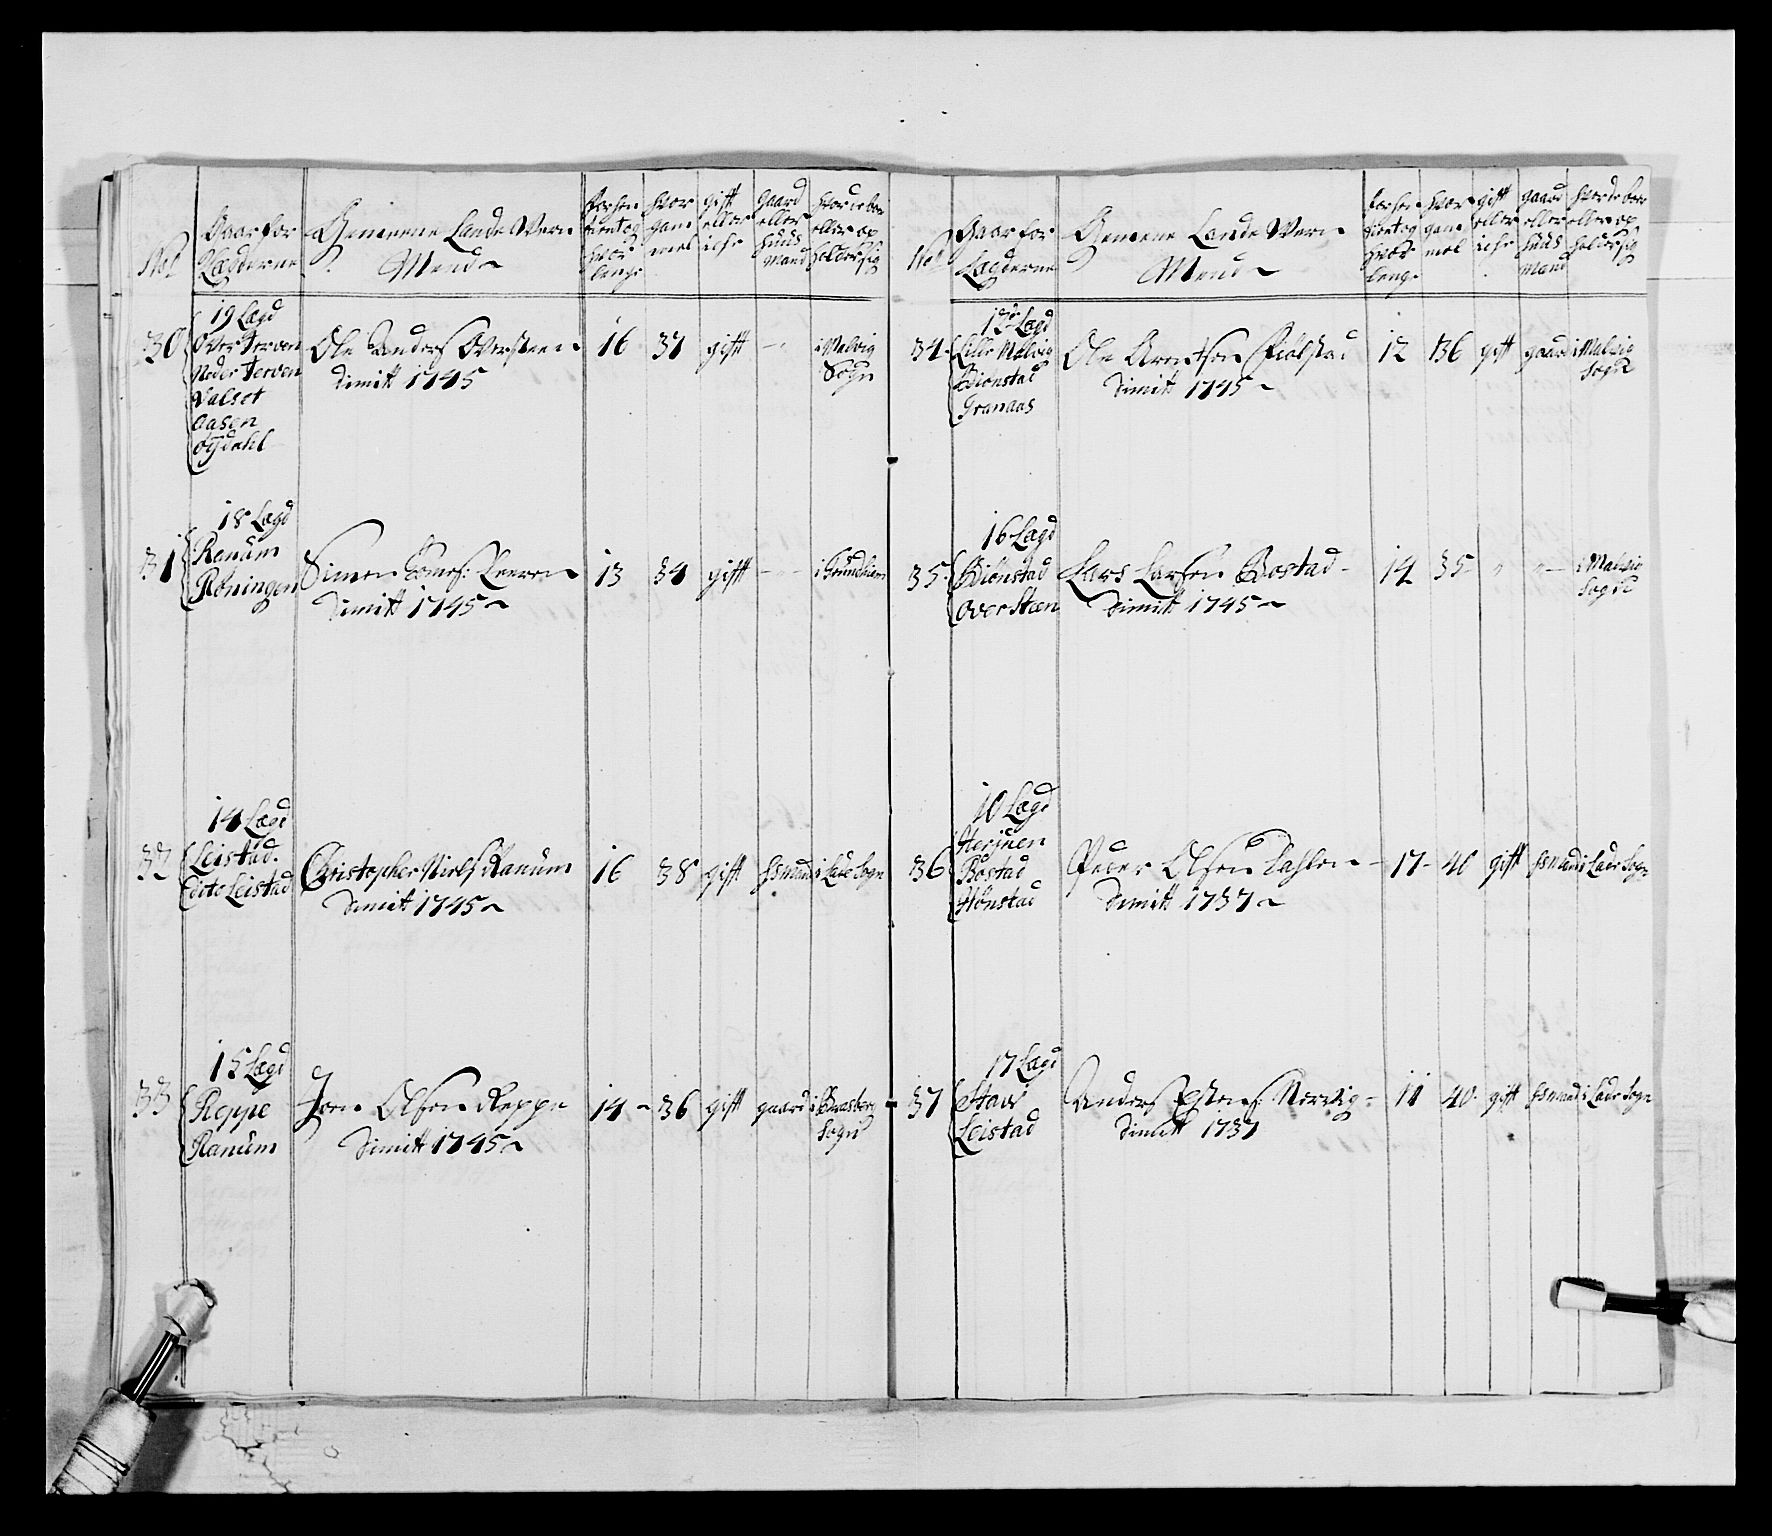 No/
Gaar for
Lægderne
Gemeene Lande Wern
Mend
for hen
tient og
hvor
lenge
hvor
gam
mel
gift
eller
ickr
gaard
eller
huus
mand
hvor de boer
eller op
holder sig
30
19 Lægd
Over Terven
Neder Terven
Valset
Aasen
Øydahl
Ole Anders Oversteen
dimitt 1745
16
37
gift
i Malvig
Sogn
31
18 Lægd
Ranum
Röningen
Simen Tomes: Leeren
dimitt 1745
13
34
gift
32
14 Lægd
Leistad.
Dito Leistad
Christopher Niels Ranum
dimitt 1745
16
38
gift
hsmand
i Lade Sogn
33
15 Lægd
Reppe
Ranum
Joen Olsen Reppe
dimitt 1745
14
36
gift
gaard
Sogn
No/
Gaar for
Lægderne
Gemene Lande Wern
Mend
for hen
tient og
hvor
lenge
hvor
gam
mel
gift
eller
ickr
gaard
eller
huus
mand
hvor de boer
eller op
holder sig
34
12 Lægd
Lille Malvig
Biönstad
Granaas
Ole Arentsen
dimitt 1745
12
36
gift
gaard
i Malvig
Sogn
35
16 Lægd
Biönstad
Over Steen
Lars Larsen Bostad
dimitt 1745
14
35
i Malvig
Sogn
36
10 Lægd
Herjuen
Bostad
Hönstad
Peder Olsen Dahlen
dimitt 1737
17
40
gift
hsmand
i Lade Sogn
37
17 Lægd
Stavs
Leistad
Anders Estens: Nervig
dimitt 1737
11
40
gift
hsmand
i Lade Sogn